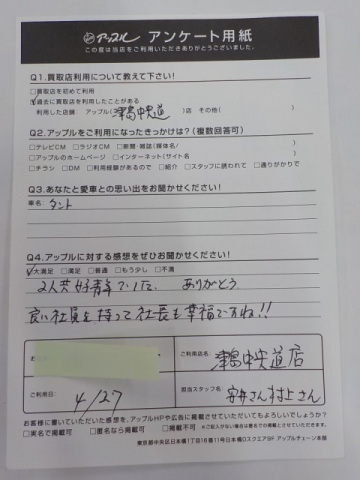 アップル アンケート用紙
この度は当店をご利用いただきありがとうございました。
Q1.買取店利用について教えて下さい!
□買取店を初めて利用
☑過去に買取店を利用したことがある
利用した店舗: アップル( 津高中央道 )店 その他( )
Q2.アップルをご利用になったきっかけは?(複数回答可)
□テレビCM □ラジオCM □新聞・雑誌(媒体名/ )
□アップルのホームページ □インターネット(サイト名 )
□チラシ □DM □利用経験があるので □紹介 □スタッフに誘われて □通りがかりで
Q3.あなたと愛車との思い出をお聞かせください!
車名: タント
Q4.アップルに対する感想をぜひお聞かせください!
☑大満足 □満足 □普通 □もう少し □不満
2人共好青年でした、 ありがとう
良い社員を持って社長も幸福ですね!!
ご利用店名: 津高中央道店
ご利用日: 4/27
担当スタッフ名: 安井さん 村上さん
お客様に書いていただいた感想を、アップルHPや広告に掲載させていただいてもよろしいでしょうか?
□実名で掲載可 □匿名なら掲載可 □掲載不可 ※ご記入がない場合は匿名での掲載とさせていただきます。
東京都中央区日本橋1丁目16番11号日本橋Dスクエア5F アップルチェーン本部